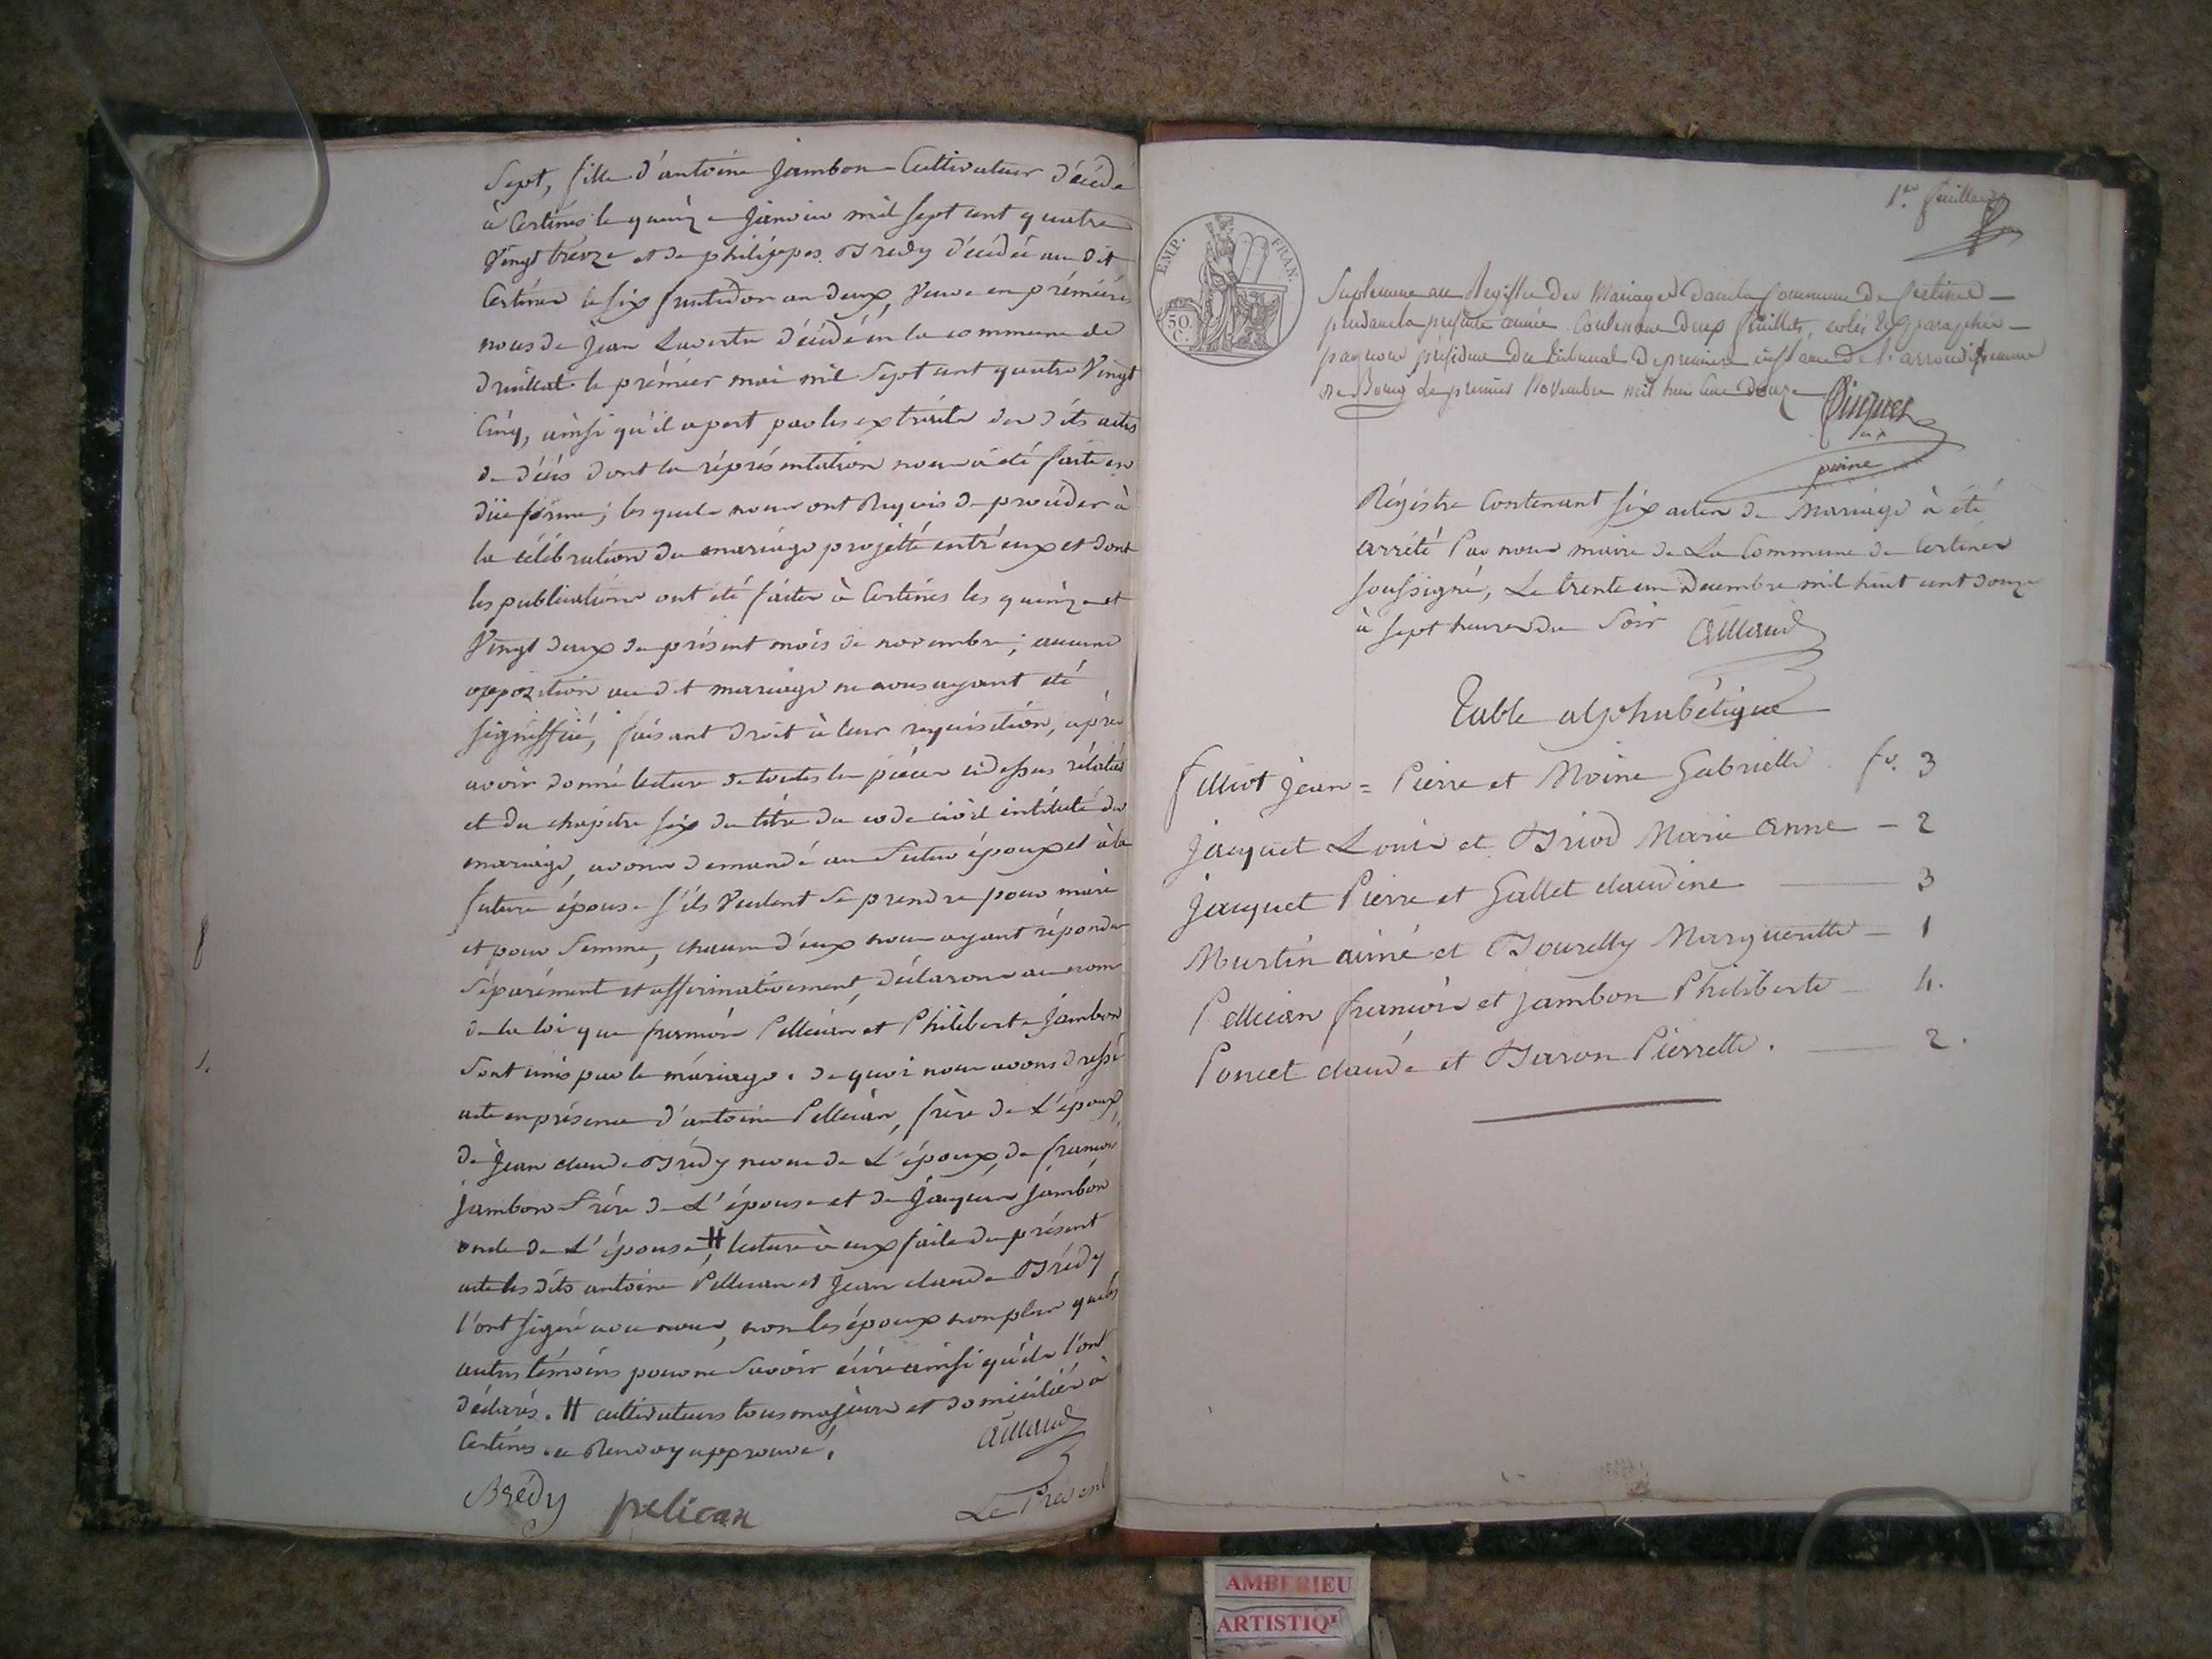 Sept, fille d'antoine Jambon Cultivateur décédé
à Certines le quinze Janvier mil sept cent quatre
Vingt treize et de philippes Bredy décédée au dit
Certines le six fructidor an deux, Veuve en prémières
noces de Jean décédé en la commune de
druillat le prémier mai mil Sept cent quatre Vingt
Cinq, ainsi qu'il apert par les extraits des dits actes
de décès dont la réprésentation nous a été faite en
düe forme; les quels nous ont Requis de procéder à
la célébration du mariage projetté entr'eux et dont
les publications ont été faites à Certines les quinze et
Vingt deux du présent mois de novembre; aucune
oppozition au dit mariage ne nous ayant été
signiffiée, faisant droit à leur requisition, après
avoir donné lecture de toutes les pièces cidessus rélatées
et du chapitre six du titre du code civil intitulé du
mariage, avons demandé au futur époux et à la
future épouse s'ils Veulent se prendre pour mari
et pour femme, chacun d'eux nous ayant répondu
séparément et affirmativement, déclarons au nom
de la loi que francois Pellican et Philiberte Jambon
sont unis par le mariage. de quoi nous avons dressé
acte en présence d'antoine Pellican, frère de L'époux,
de Jean claude Brédy neveu de L'époux, de francois
Jambon frère de L'épouse et de Jambon
oncle de L'épouse H, lecture à eux faite du présent
acte les dits antoine Pellican et Jean claude Brédy
l'ont signé avec nous, non les époux non plus que les
autres témoins pour ne savoir écrire ainsi qu'ils l'ont
déclarés. H cultivateurs tous majeurs et domiciliés à
Certines. ce Renvoy approuvé.
Aillaud
Brédy pelican
1er feuillet
EMP. FRAN.
50 C.
Suplement au Registre des Mariages dans la Commune de Certines
pendant la présente année Contenant deux feuillets, cotés et paraphés
par nous président du tribunal de premiere instance de l'arrondissement
de Bourg Le premier Novembre mil huit Cent douze
Régistre Contenant six actes de Mariage à été
arrêté Par nous maire de La Commune de Certines
soussigné, Le trente un Décembre mil huit cent douze
à sept heures du Soir Aillaud
Table alphabétique
filliot Jean = Pierre et Moine Gabrielle fo. 3
Jacquet Louis et Briod Marie Anne — 2
Jacquet Pierre et Gallet claudine — 3
Martin aimé et Bourelly Marguerite — 1
Pellican francois et Jambon Philiberte — 4.
Poncet claude et Baron Pierrette. — 2.
AMBERIEU
ARTISTIQ